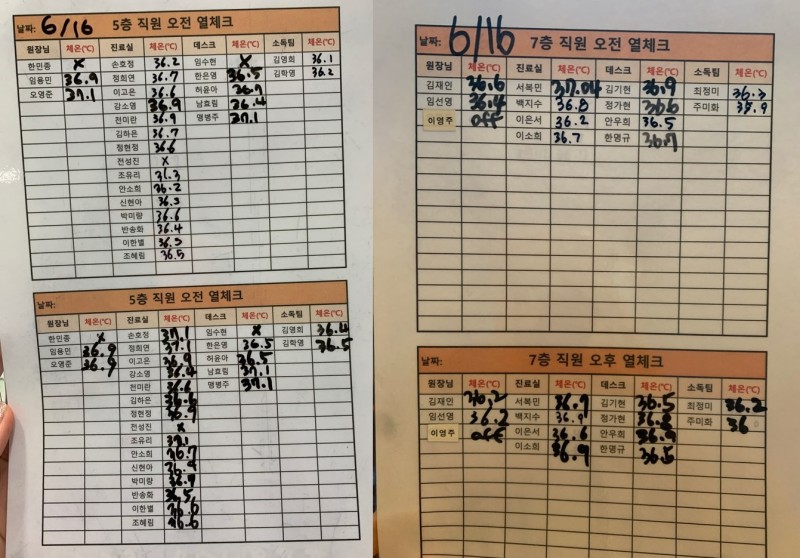 날짜: 6/16 5층 직원 오전 열체크
원장님 체온(℃) 진료실 체온(℃) 데스크 체온(℃) 소독팀 체온(℃)
한민종 x 손호정 36.2 임수현 x 김영희 36.1
임용민 36.9 정희연 36.7 한은영 36.5 김학영 36.2
오영준 37.1 이고은 36.6 허윤아
강소영 36.9 남효림 36.4
천미란 36.9 명병주 37.1
김하은 36.7
정현정 36.6
전성진 x
조유리
안소희 36.2
신현아 36.5
박미량 36.6
반송화 36.4
이한별 36.5
조혜림 36.5
날짜: 5층 직원 오전 열체크
원장님 체온(℃) 진료실 체온(℃) 데스크 체온(℃) 소독팀 체온(℃)
한민종 x 손호정 37.1 임수현 x 김영희 36.4
임용민 36.9 정희연 37.1 한은영 36.5 김학영 36.5
오영준 36.9 이고은 36.9 허윤아 36.5
강소영 36.4 남효림 37.1
천미란 36.6 명병주 37.1
김하은 36.6
정현정 36.9
전성진 x
조유리 37.1
안소희 36.7
신현아 36.9
박미량 36.9
반송화 36.5
이한별 36.6
조혜림 36.6
날짜: 6/16 7층 직원 오전 열체크
원장님 체온(℃) 진료실 체온(℃) 데스크 체온(℃) 소독팀 체온(℃)
김재인 36.6 서복민 37.04 김기현 36.9 최정미 36.3
임선영 36.4 백지수 36.8 정가현 36.6 주미화
이영주 off 이은서 36.2 안우희 36.5
이소희 36.7 한명규 36.7
날짜: 7층 직원 오후 열체크
원장님 체온(℃) 진료실 체온(℃) 데스크 체온(℃) 소독팀 체온(℃)
김재인 36.2 서복민 36.9 김기현 36.5 최정미 36.2
임선영 36.2 백지수 36.9 정가현 36.8 주미화 36
이영주 off 이은서 36.6 안우희 36.9
이소희 36.9 한명규 36.5